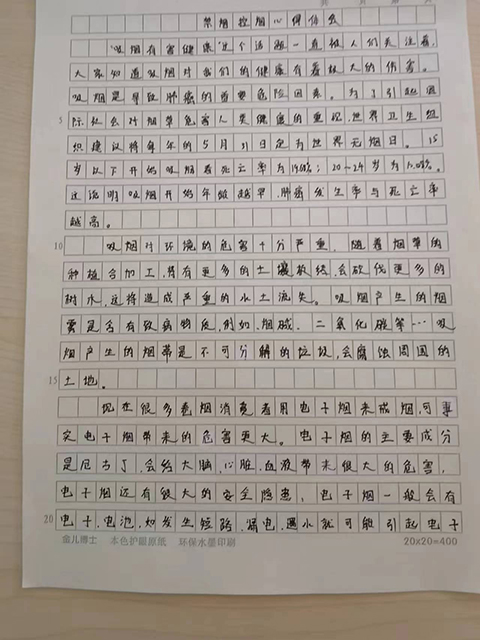 禁烟控烟心得体会
“吸烟有害健康”这个话题一直被人们关注着,
大家知道吸烟对我们的健康有着极大的伤害。
吸烟是导致肺癌的首要危险因素。为了引起国
5 际社会对烟草危害人类健康的重视,世界卫生组
织建议将每年的5月31日定为世界无烟日。15
岁以下开始吸烟者死亡率为
这说明吸烟开始年龄越早,肺癌发生率与死亡率
越高。
10 吸烟对环境的危害十分严重,随着烟草的
种植合加工,具有更多的土壤
会砍伐更多的
树木,这将造成严重的水土流失。吸烟产生的烟
雾是含有致病物质,例如,烟碱,二氧化碳等…吸
烟产生的烟蒂是不可分解的垃圾,会腐蚀周围的
15 土地。
现在很多卷烟消费者用电子烟来戒烟,可事
实电子烟带来的危害更大。电子烟的主要成分
是尼古丁,会给大脑,心脏,血液带来很大的危害,
电子烟还有很大的安全隐患,电子烟一般会有
20 电子,电池,如发生短路,漏电,遇水就可能引起电子
金儿博士 本色护眼原纸 环保水墨印刷 20×20=400